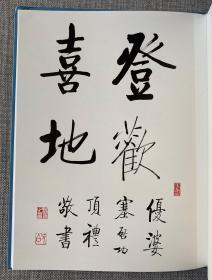 登歡
喜地
優婆
塞啟功
頂禮
敬書